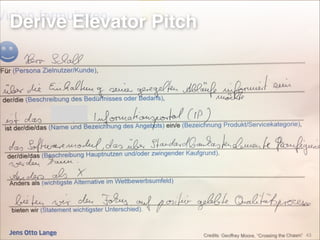 Derive Elevator Pitch
Herr Schall
Für (Persona Zielnutzer/Kunde),
über die Einhaltung seine geregelten Abläufe informiert sein
möchte
der/die (Beschreibung des Bedürfnisses oder Bedarfs),
ist das Informationsportal (IP)
ist der/die/das (Name und Bezeichnung des Angebots) ein/e (Bezeichnung Produkt/Servicekategorie),
das Softwaremodul, das über Standard
der/die/das (Beschreibung Hauptnutzen und/oder zwingender Kaufgrund).
werden kann.
Anders als X
Anders als (wichtigste Alternative im Wettbewerbsumfeld)
bieten wir den Fokus auf positiv gelebte Qualitätsprozesse
bieten wir (Statement wichtigster Unterschied).
Jens Otto Lange
Credits: Geoffrey Moore, "Crossing the Chasm" 43